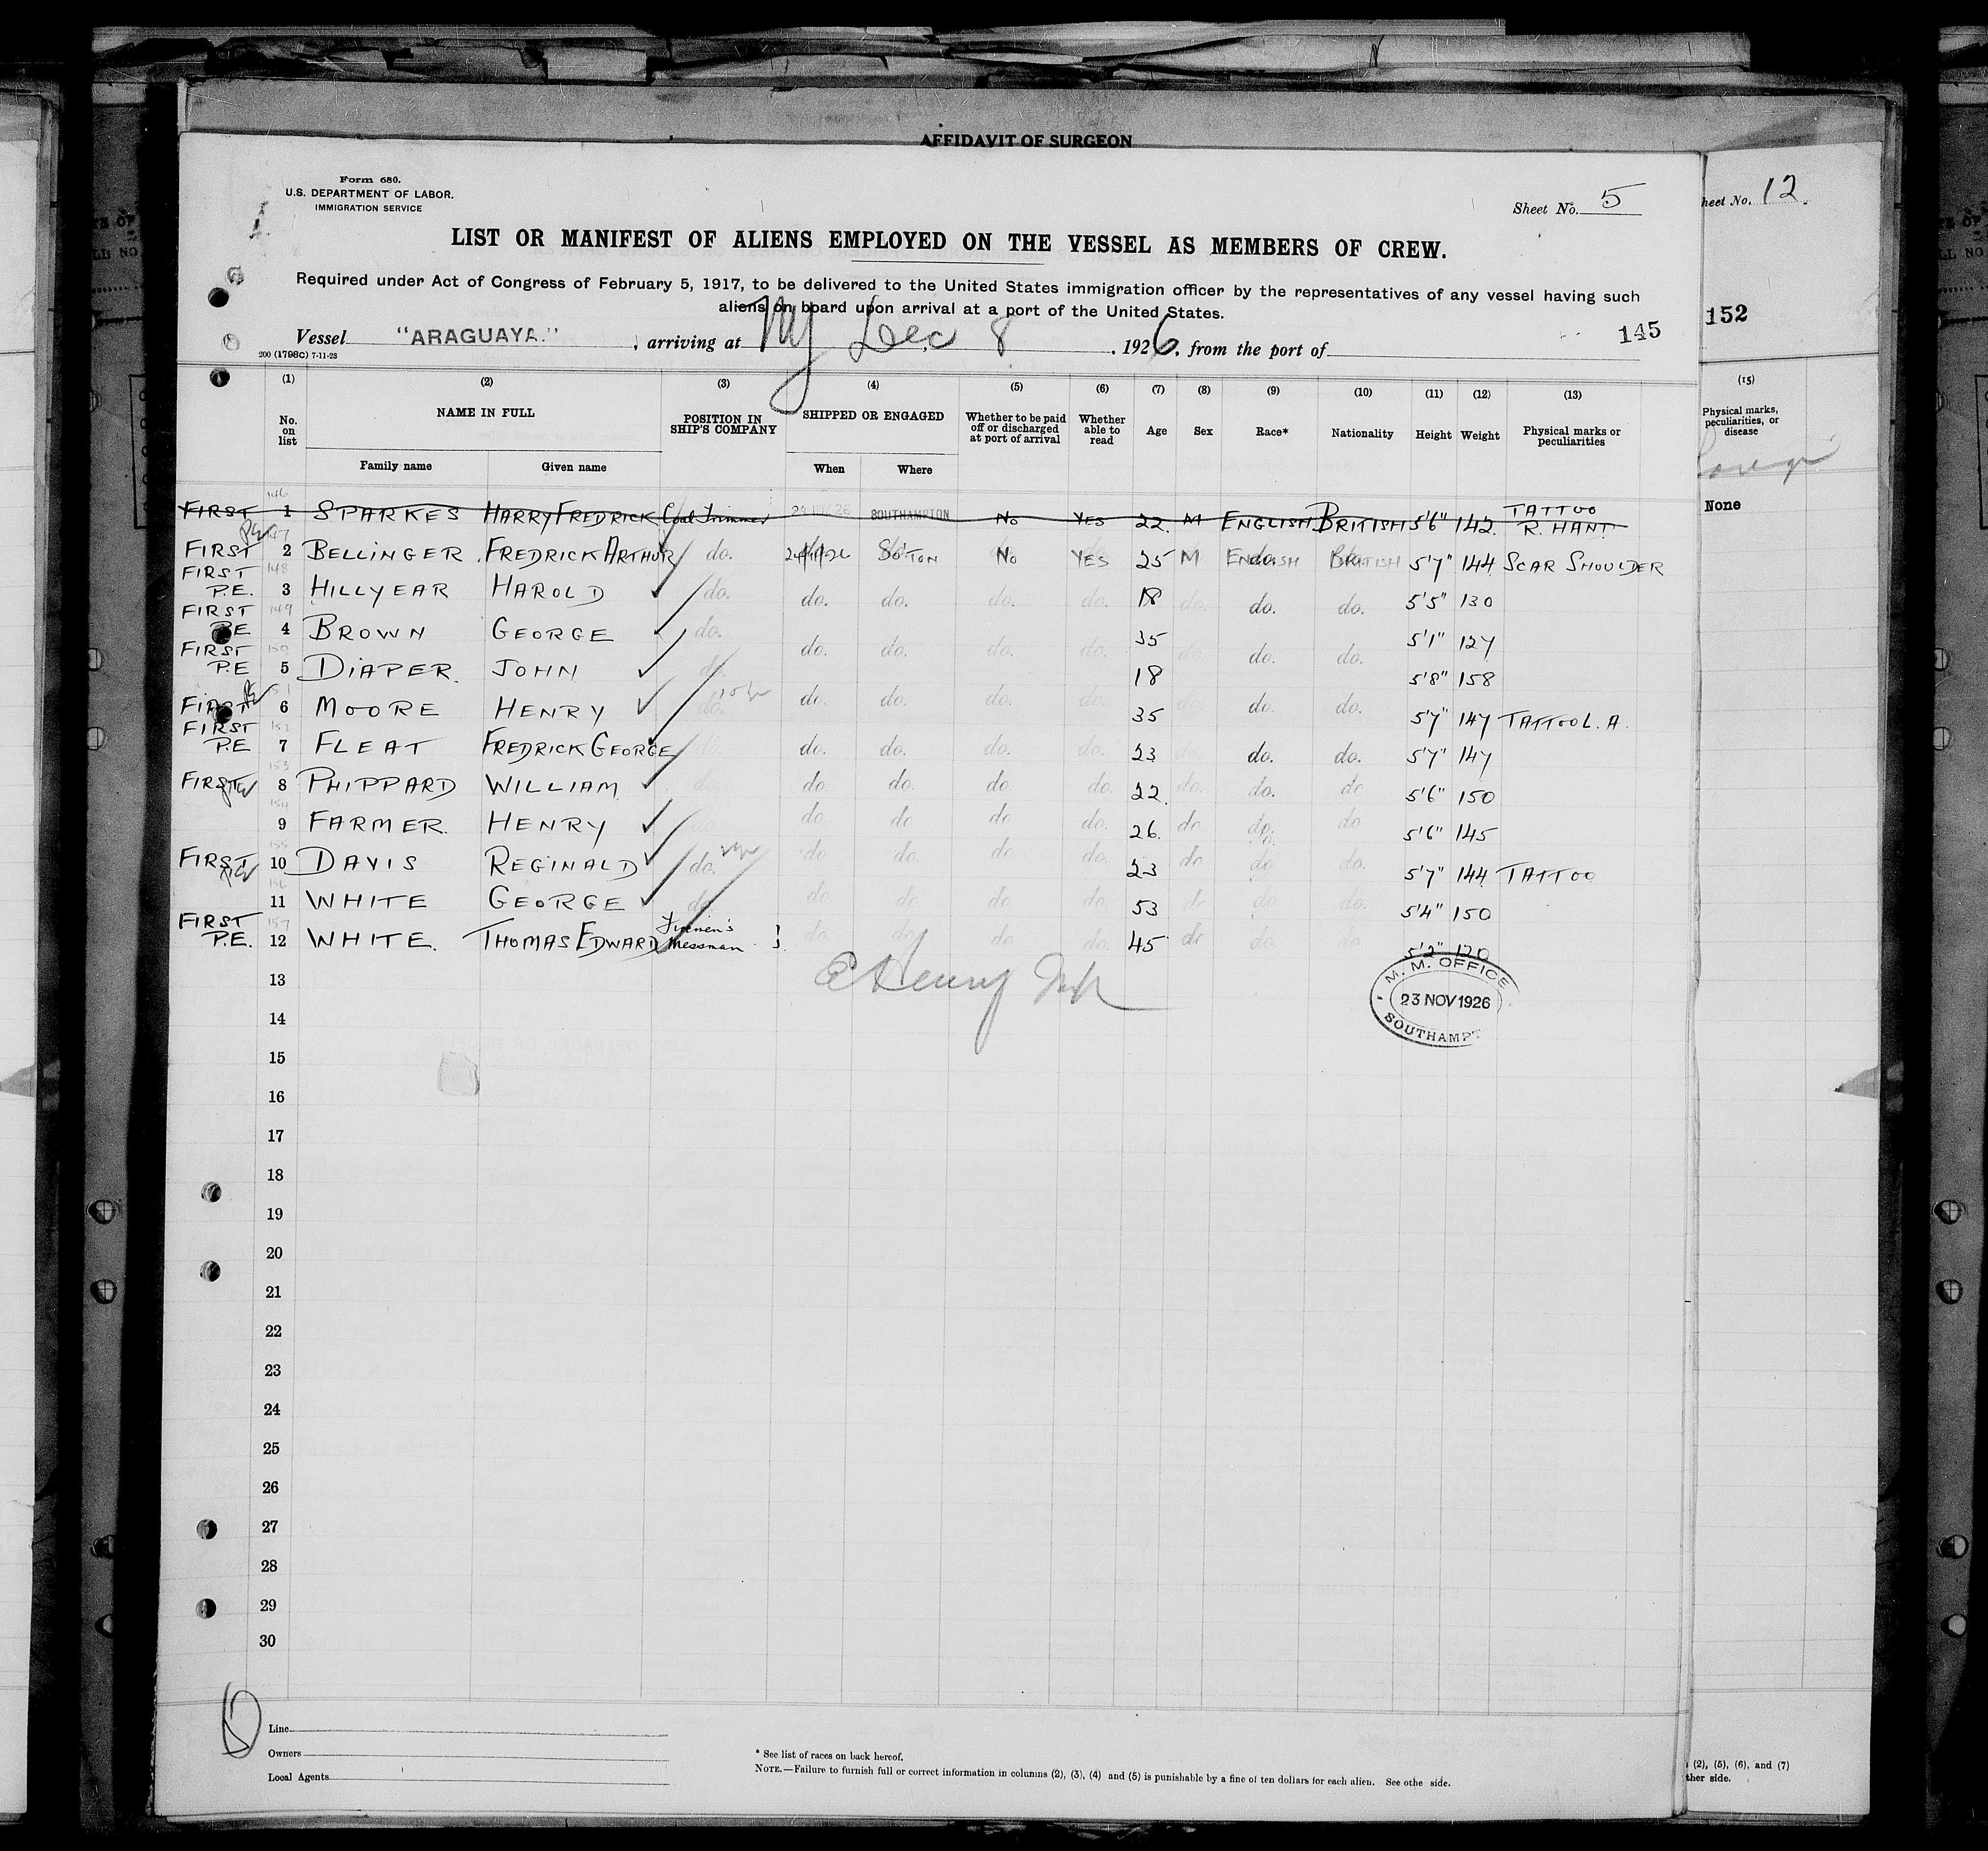 AFFIDAVIT OF SURGEON
Form 680.
U.S. DEPARTMENT OF LABOR.
IMMIGRATION SERVICE
Sheet No. 5
heet No. 12.
LIST OR MANIFEST OF ALIENS EMPLOYED ON THE VESSEL AS MEMBERS OF CREW.
Required under Act of Congress of February 5, 1917, to be delivered to the United States immigration officer by the representatives of any vessel having such
aliens on board upon arrival at a port of the United States.
Vessel "ARAGUAYA." , arriving at NY Dec 8 , 1926, from the port of
145
152
200 (1798C) 7-11-23
(1) (2) (3) (4) (5) (6) (7) (8) (9) (10) (11) (12) (13)
No. on list NAME IN FULL POSITION IN SHIP'S COMPANY SHIPPED OR ENGAGED Whether to be paid off or discharged at port of arrival Whether able to read Age Sex Race* Nationality Height Weight Physical marks or peculiarities
Family name Given name When Where
(15)
Physical marks, peculiarities, or disease
None
FIRST 146 1 SPARKES HARRY FREDRICK Coal Trimmer SOUTHAMPTON No YES 22. M ENGLISH BRITISH 5'6" 142. TATTOO R. HANT
FIRST PE 147 2 BELLINGER. FREDRICK ARTHUR do. So'TON No YES 25 M ENGLISH BRITISH 5'7" 144 SCAR SHOULDER
FIRST P.E. 148 3 HILLYEAR HAROLD do. do. do. do. do. 18 do. do. do. 5'5" 130
FIRST PE 149 4 BROWN GEORGE do. do. do. do. do. 35 do. do. do. 5'1" 127
FIRST P.E 150 5 DIAPER. JOHN do. 18 5'8" 158
FIRST PE 151 6 MOORE HENRY do. do. do. do. do. 35 do. do. do. 5'7" 147 TATTOO L. A.
FIRST P.E 152 7 FLEAT FREDRICK GEORGE do. do. do. do. do. 23 do. do. do. 5'7" 147
FIRST PE 153 8 PHIPPARD WILLIAM do. do do. do do. 22. do. do. do 5'6" 150
154 9 FARMER. HENRY do. do do do. 26. do do. do 5'6" 145
FIRST PE 155 10 DAVIS REGINALD do. do do. do do. 23 do do. do. 5'7" 144 TATTOO
156 11 WHITE GEORGE do. do. do do do. 53 do do do. 5'4" 150
FIRST P.E. 157 12 WHITE. THOMAS EDWARD Firemen's Messman do. do. do do. 45 do do. do. 5'2" 120
13
M. M. OFFICE
23 NOV 1926
SOUTHAMPT
14
15
16
17
18
19
20
21
22
23
24
25
26
27
28
29
30
Line
Owners
Local Agents
* See list of races on back hereof.
NOTE.—Failure to furnish full or correct information in columns (2), (3), (4) and (5) is punishable by a fine of ten dollars for each alien. See othe side.
(2), (5), (6), and (7)
ther side.